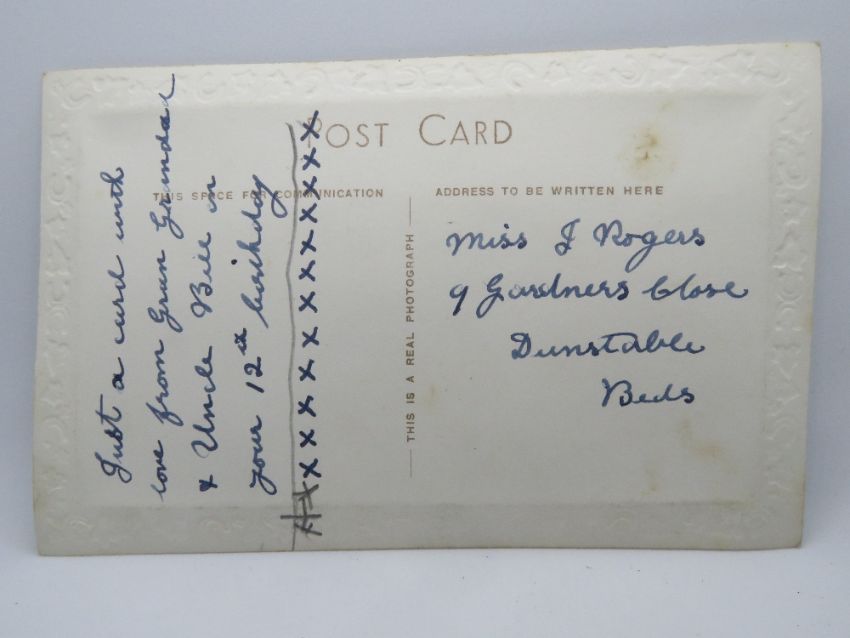 POST CARD
THIS SPACE FOR COMMUNICATION
ADDRESS TO BE WRITTEN HERE
THIS IS A REAL PHOTOGRAPH
Just a card with
love from Gran Grandad
& Uncle Bill on
your 12th birthday
x x x x x x x x x x x x
Miss J Rogers
9 Gardners Close
Dunstable
Beds